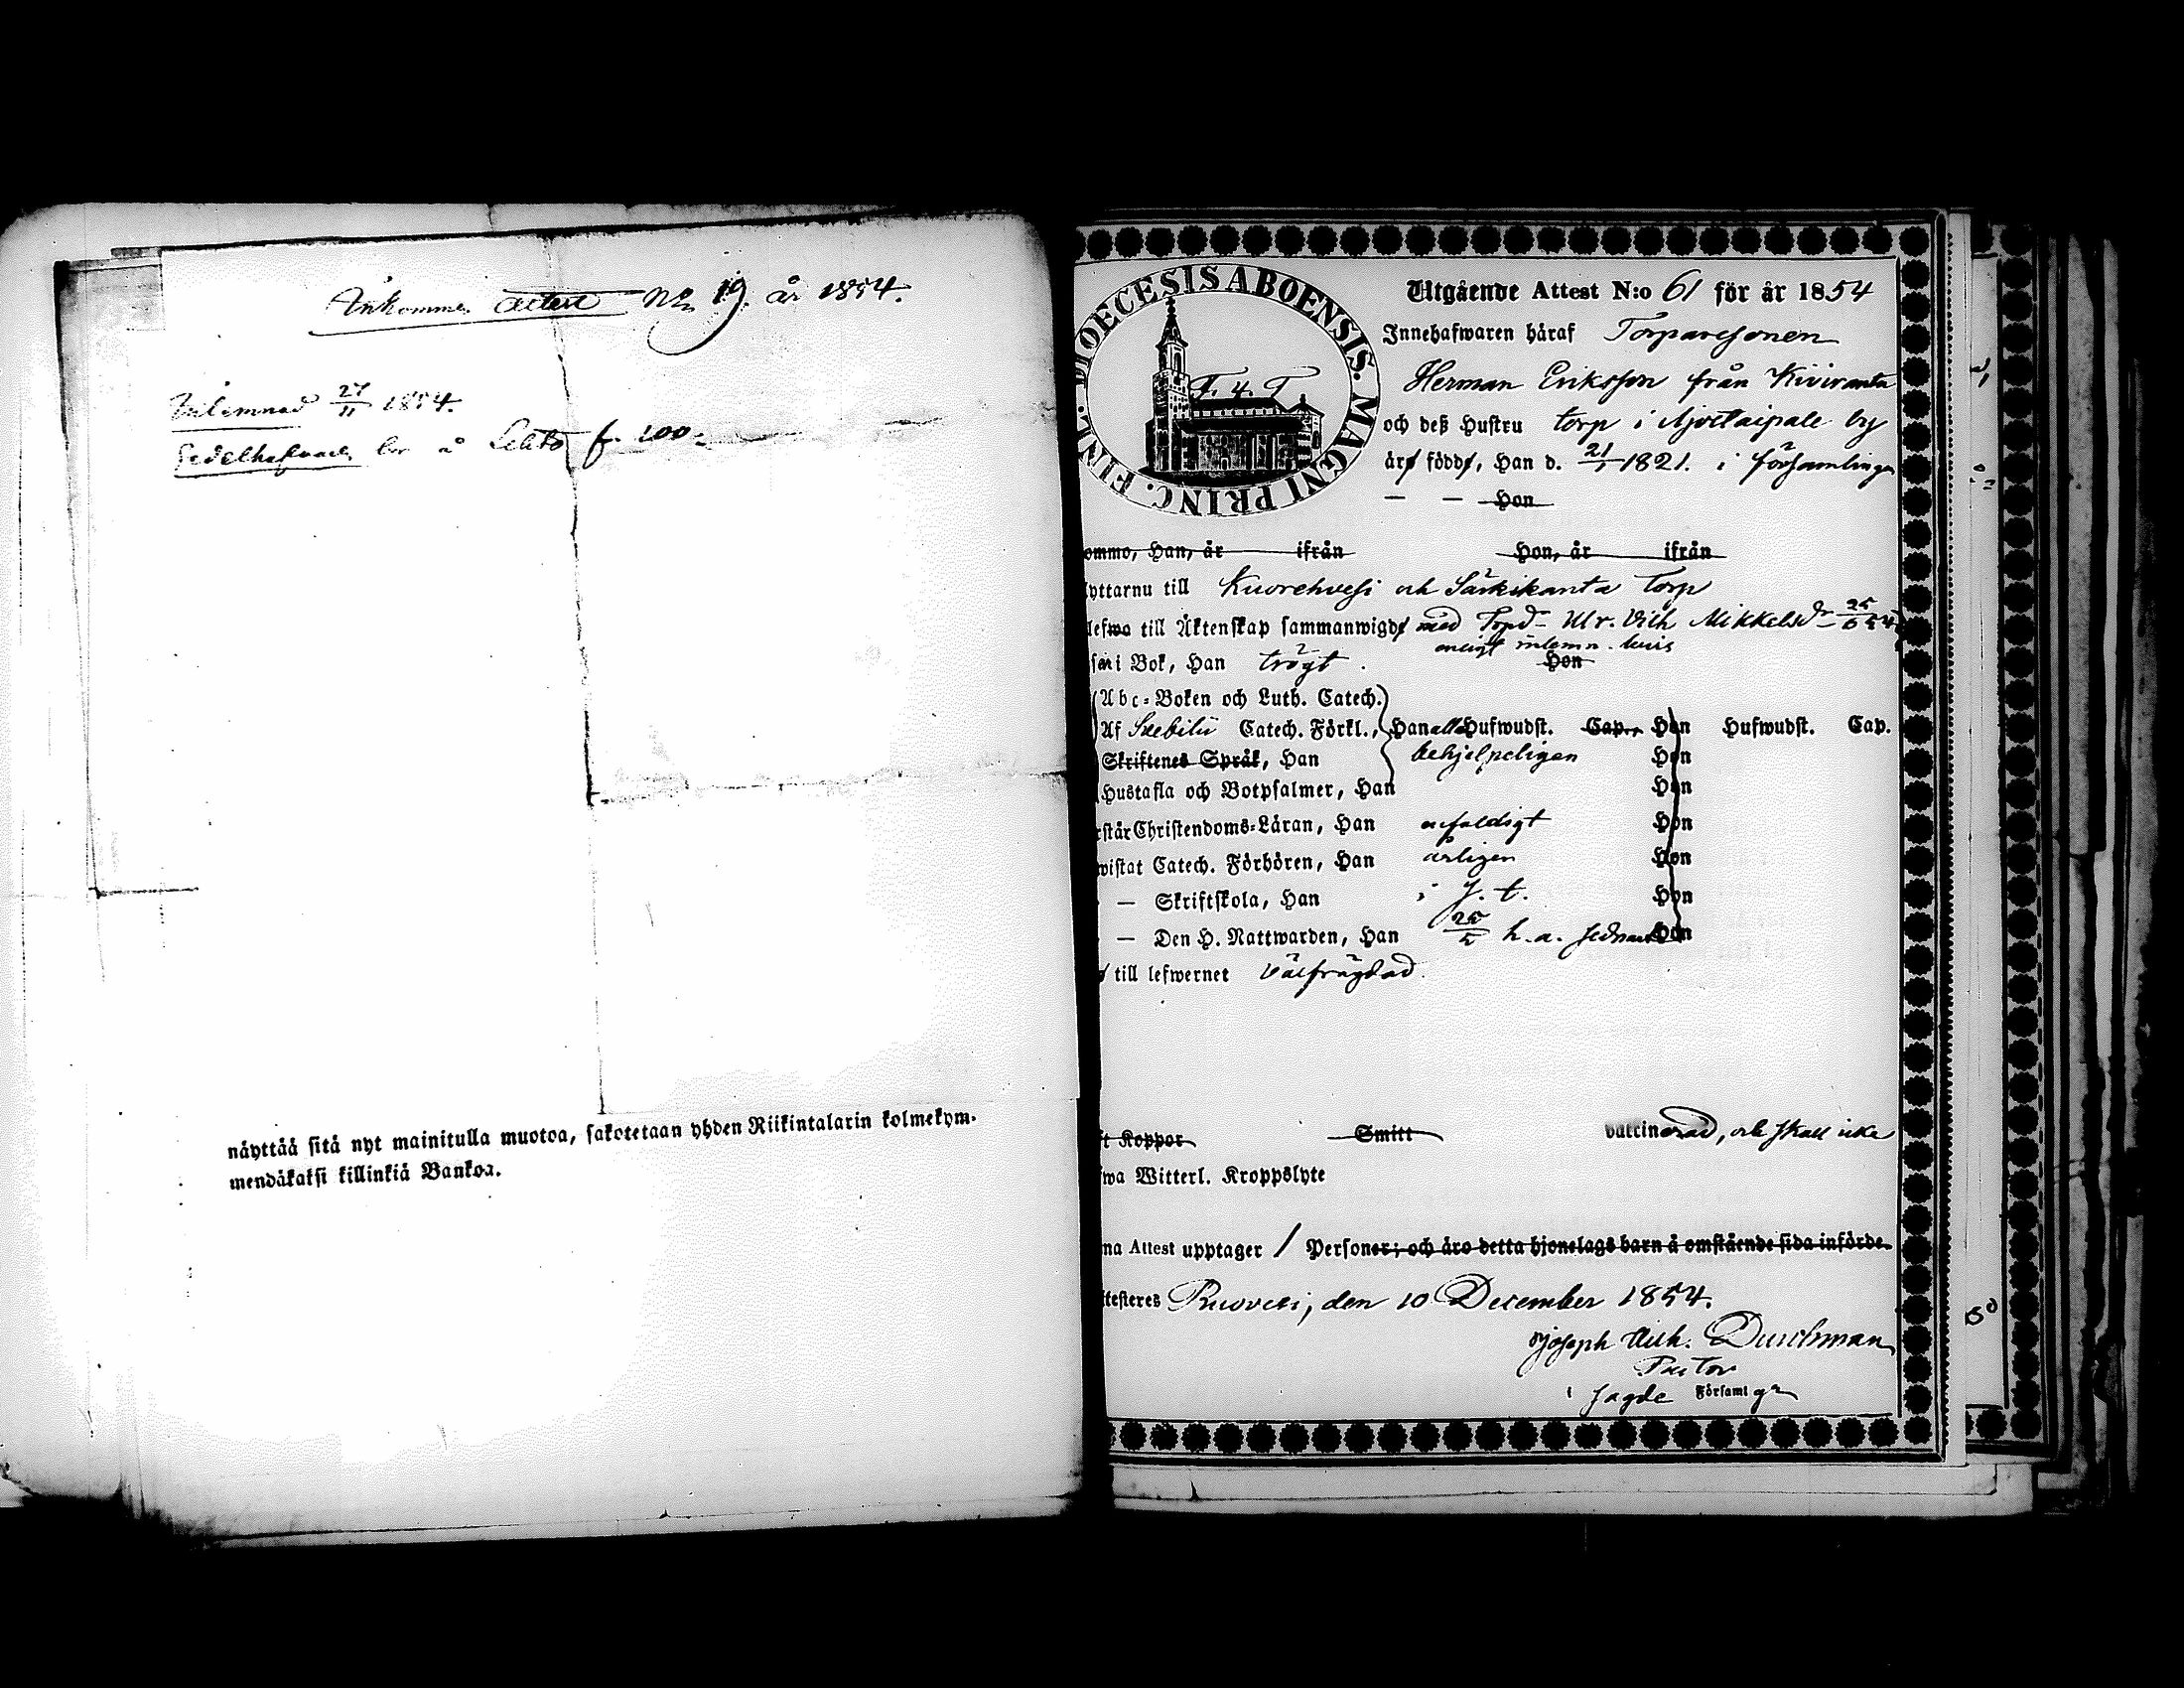 Inkommen Attest No 19. år 1854.
Inlemnad 27/11 1854.
Sedelhafvaren bor å Lehto f. 100.
näyttää sitä nyt mainitulla muotoa, sakotetaan yhden Riikintalarin kolmekym-
mendäkaksi killinkiä Bankoa.
FINL. DIOECESIS ABOENSIS. MAGNI PRINC.
F. 4. T
Utgående Attest N:o 61 för år 1854
Innehafwaren häraf Torparesonen
Herman Eriksson från Kiviranta
och deß Hustru torp i by
äro födde, Han d. 21/1 1821. i församlingen
— — Hon
ommo, Han, år ifrån Hon, år ifrån
lyttarnu till Kuorehvesi och Särkikanta Torp
lefwa till Äktenskap sammanwigde med Torpd. Ulr. Vilh. Mikkelsdr 25/6 54
enligt inlemn. bevis
i Bok, Han trögt. Hon
Abc-Boken och Luth. Catech.
Af Svebilii Catech. Förkl., Han alla Hufwudst. Cap., Hon Hufwudst. Cap.
Skriftenes Språk, Han behjelpeligen Hon
Hustafla och Botpsalmer, Han Hon
rstår Christendoms-Läran, Han enfaldigt Hon
wistat Catech. Förhören, Han årligen Hon
— Skriftskola, Han i y. t. Hon
— Den H. Nattwarden, Han h. a. sednast Hon
till lefwernet välfrägdad.
ft Koppor Smitt vaccinerad, och skall icke
fwa Witterl. Kroppslyte
na Attest upptager 1 Personer; och äro detta hjonelags barn å omstående sida införde.
ttesteres Ruovesi, den 10 December 1854.
Joseph Wilh. Durchman
Pastor
i sagde Församlgn